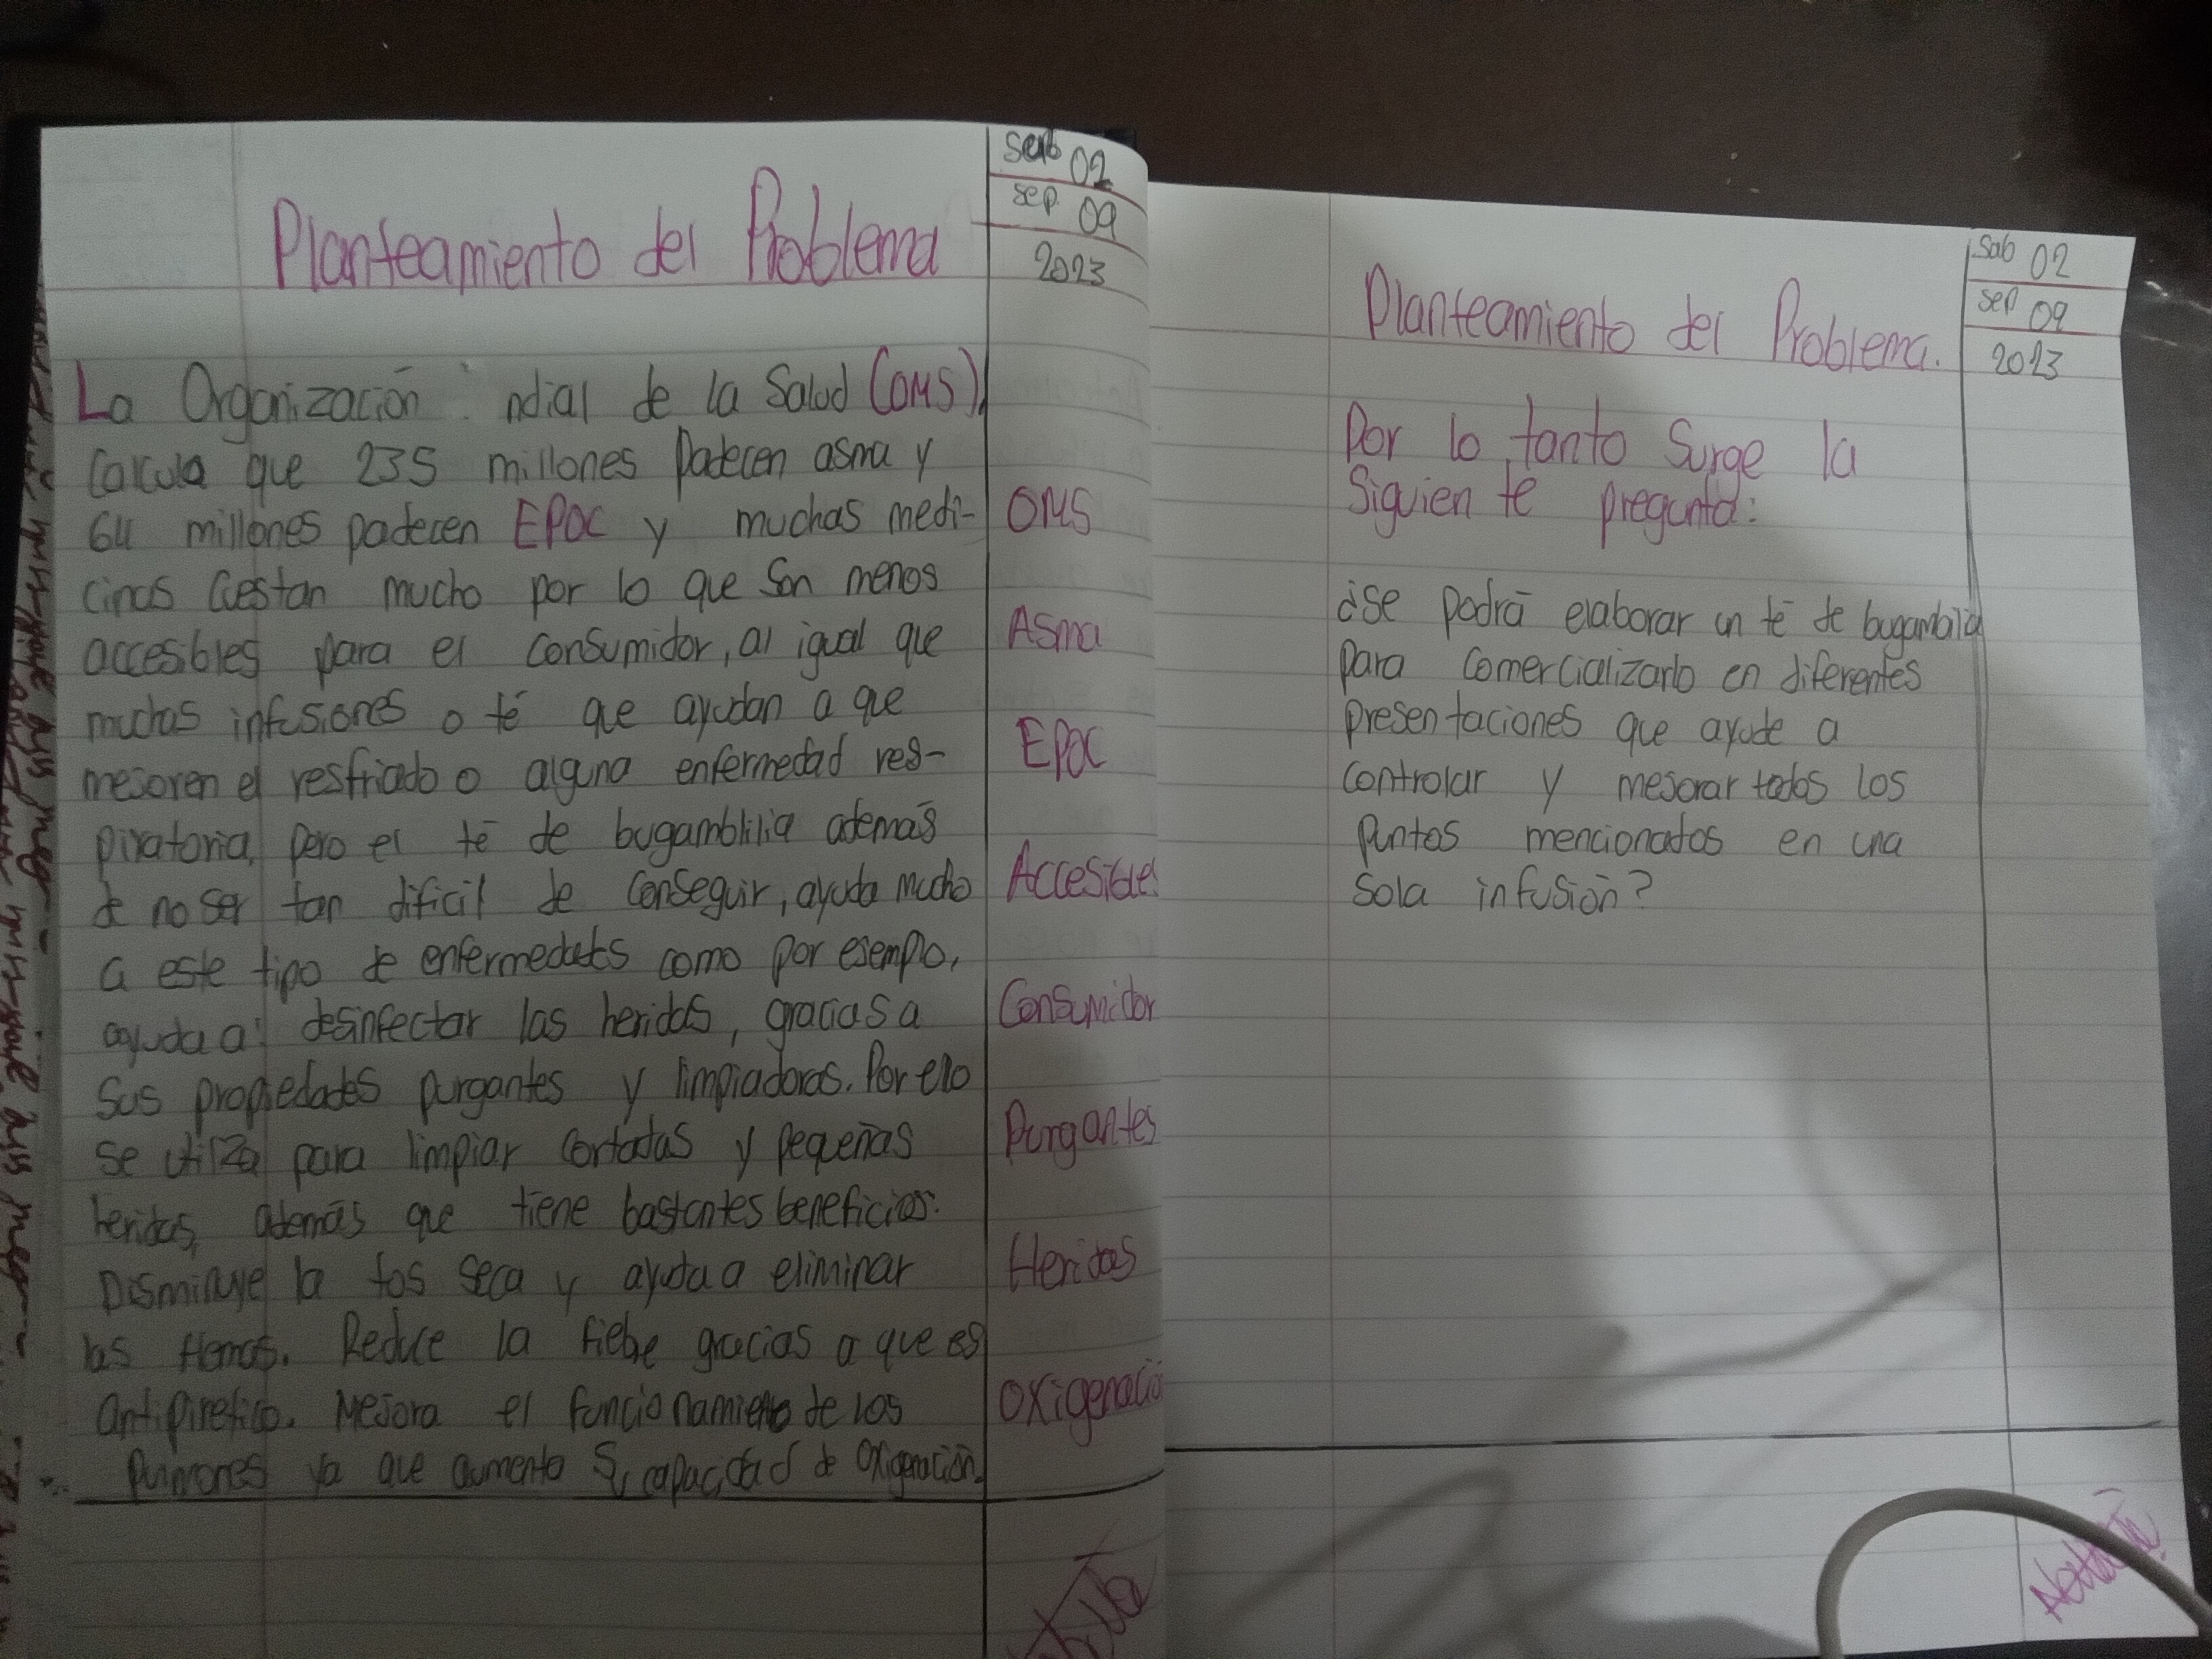 Planteamiento del Problema
02
sep 09
2023
La Organización ndial de la Salud (OMS),
calcula que 235 millones padecen asma y
64 millones padecen EPOC y muchas medi-
cinas cuestan mucho por lo que son menos
accesibles para el consumidor, al igual que
muchas infusiones o té que ayudan a que
mejoren el resfriado o alguna enfermedad res-
piratoria, pero el té de bugamblilia además
de no ser tan dificil de conseguir, ayuda mucho
a este tipo de enfermedades como por ejemplo,
ayuda a: desinfectar las heridas, gracias a
sus propiedades purgantes y limpiadoras. Por ello
se utiliza para limpiar cortadas y pequeñas
heridas, además que tiene bastantes beneficios:
Disminuye la tos seca y ayuda a eliminar
las flemas. Reduce la fiebe gracias a que es
Antipiretico. Mejora el funcionamiento de los
pulmones ya que aumenta su capacidad de oxigenación.
OMS
Asma
EPOC
Accesibles
Consumidor
Purgantes
Heridas
Oxigenació
Planteamiento del Problema.
Sab 02
sep 09
2023
Por lo tanto surge la
siguiente pregunta:
¿Se podrá elaborar un té de bugambilia
para comercializarlo en diferentes
presentaciones que ayude a
controlar y mejorar todos los
puntos mencionados en una
sola infusión?